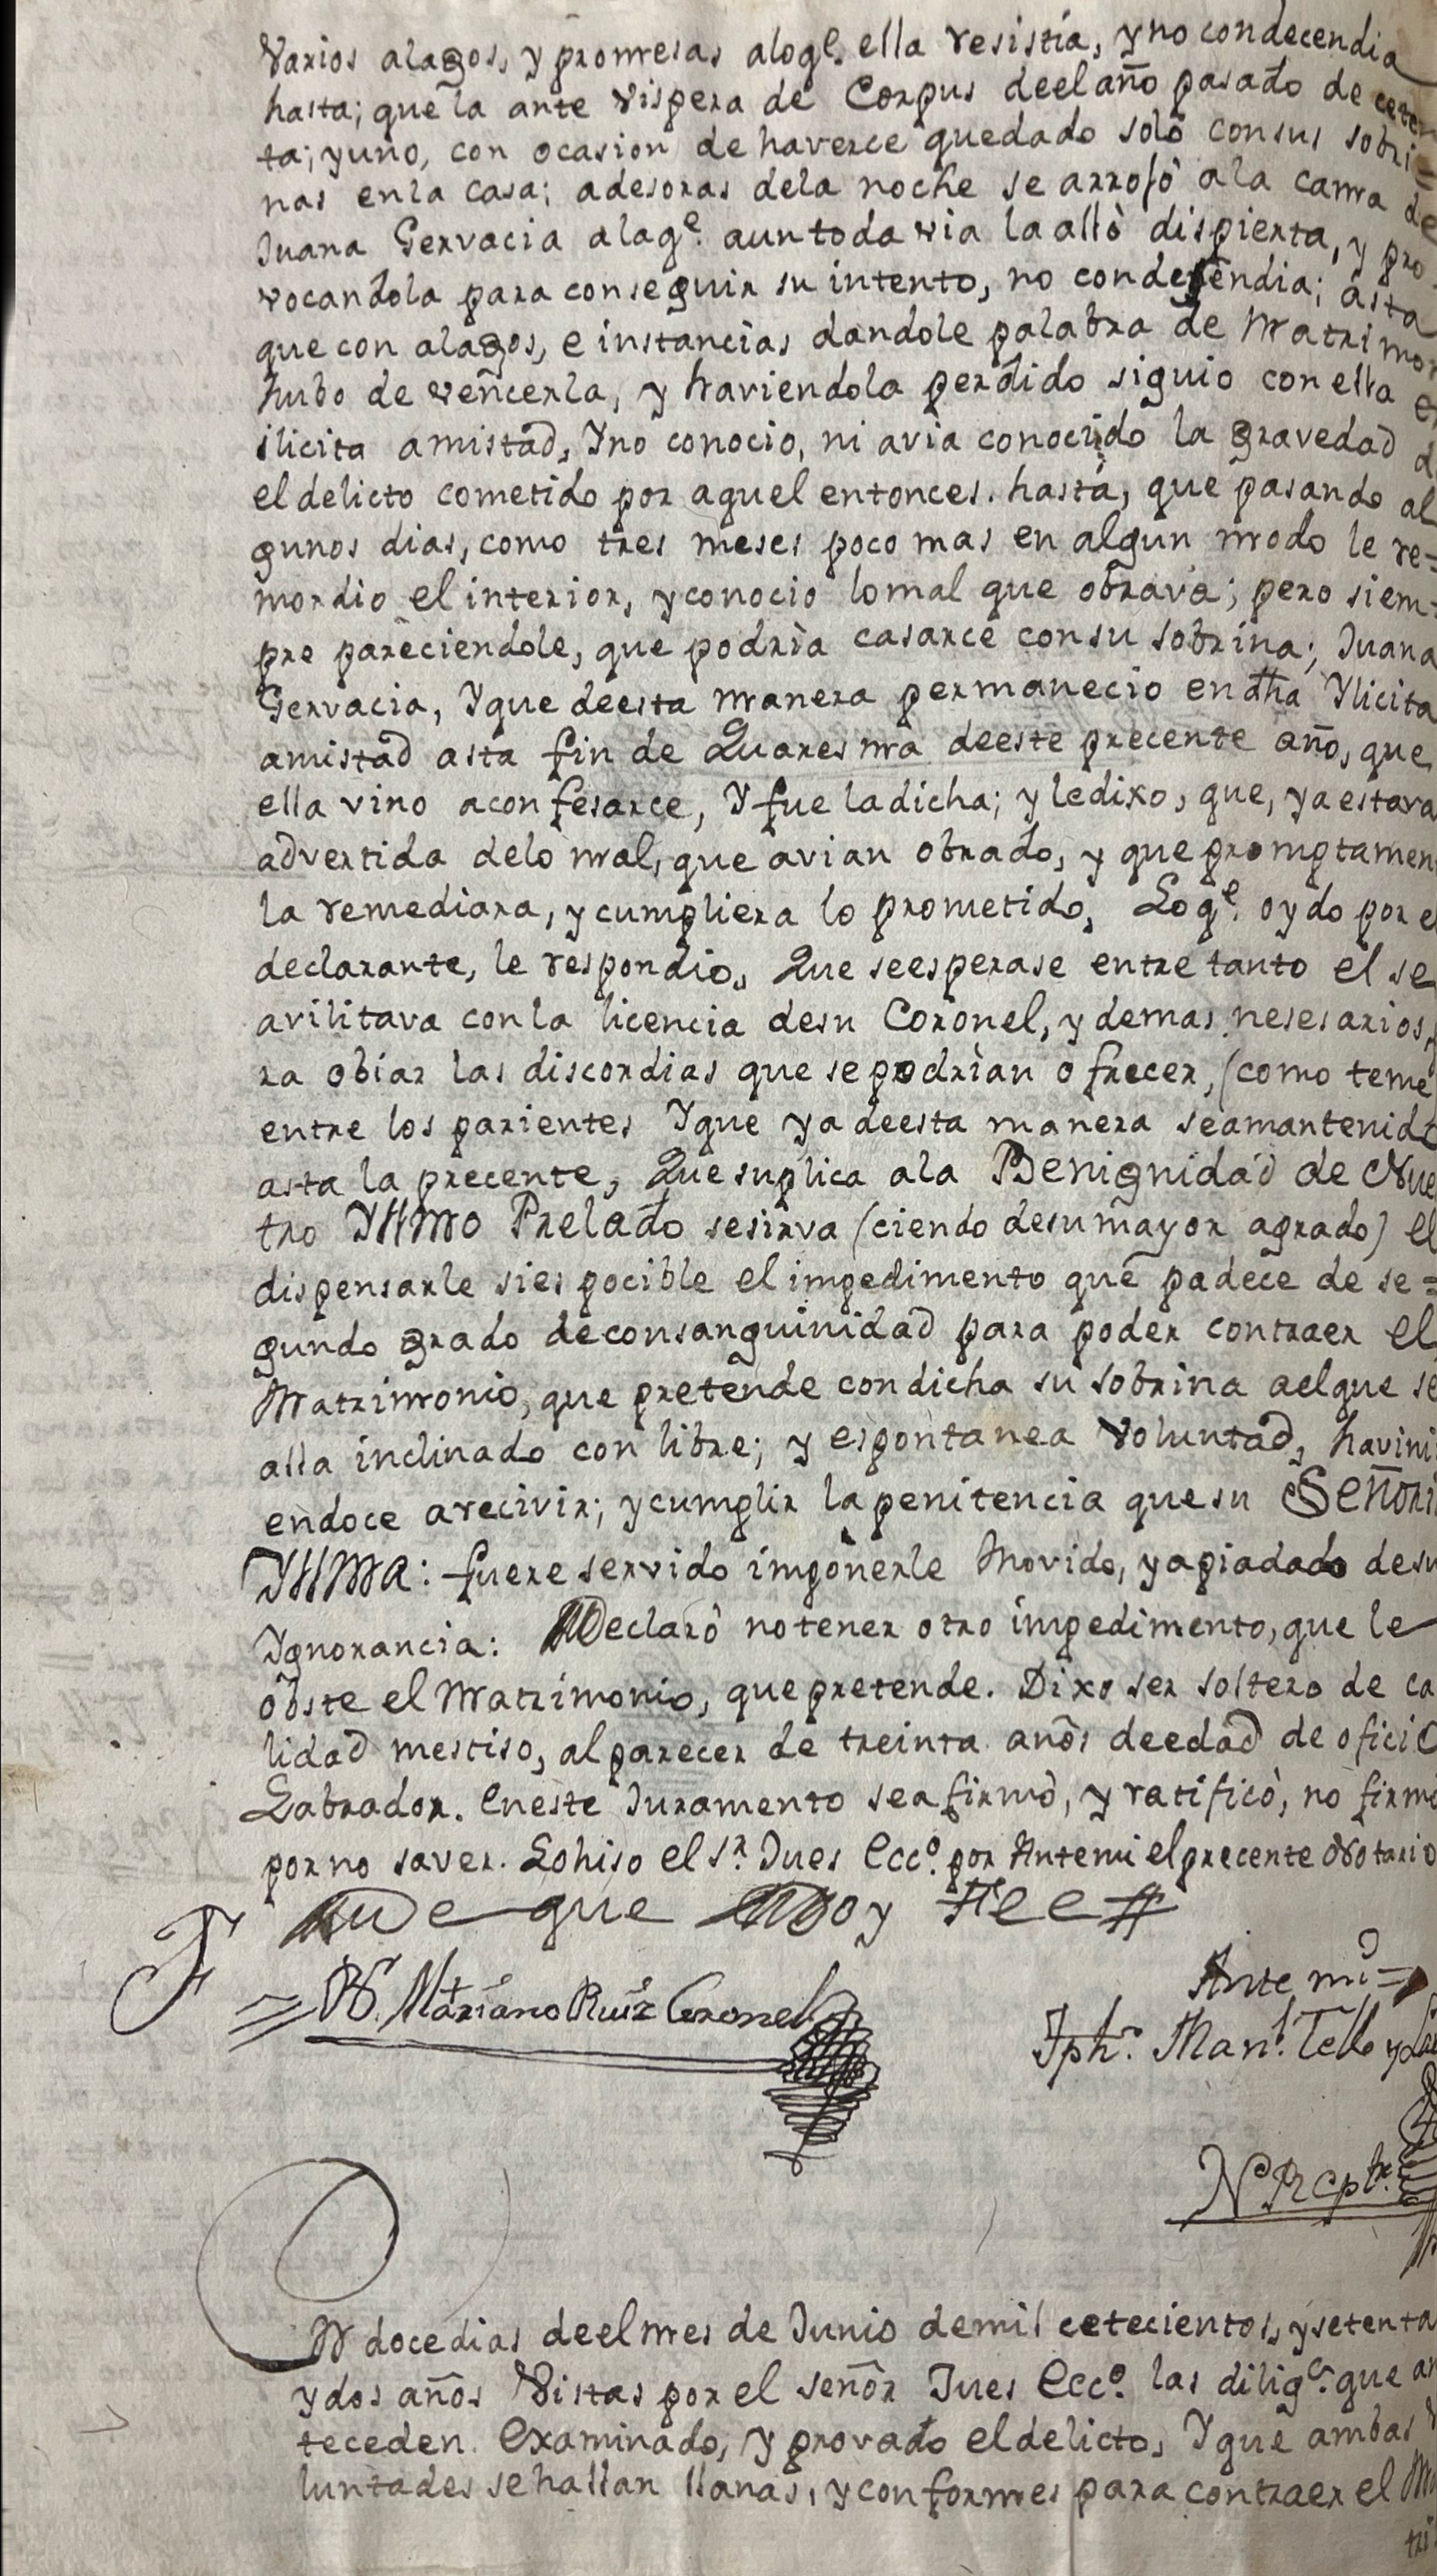 Varios alagos, y promesas aloq.e ella resistia, y no condecendia
hasta; que la ante vispera de Corpus deel año pasado de ceten
ta; y uno, con ocasion de haverce quedado solo con sus sobri
nas en la casa; adesoras dela noche se arrojò a la cama de
Juana Gervacia alaq.e aun toda via la allò dispierta, y pro
vocandola para conseguir su intento, no condecendia; asta
que con alagos, e instancias dandole palabra de Matrimon
hubo de vencerla, y haviendola perdido siguio con ella en
ilicita amistad, Y no conocio, ni avia conocido la gravedad d
el delicto cometido por aquel entonces. hasta, que pasando al
gunos dias, como tres meses poco mas en algun modo le re=
mordio el interior, y conocio lo mal que obrava; pero siem-
pre pareciendole, que podria casarce con su sobrina; Juana
Gervacia, Y que de esta manera permanecio en dha Ylicita
amistad asta fin de Quaresma de este precente año, que
ella vino a confesarce, Y fue la dicha; y le dixo, que, ya estava
advertida delo mal, que avian obrado, y que promptamen
la remediara, y cumpliera lo prometido, Loq.e oydo por e
declarante, le respondio, Que se esperase entre tanto el se
avilitava con la licencia de su Coronel, y demas nesesarios,
ra obiar las discordias que se podrian ofrecer, (como teme
entre los parientes Y que ya de esta manera se a mantenido
asta la precente, Que suplica a la Benignidad de Nue
tro Yllmo Prelado se sirva (ciendo de su mayor agrado) el
dispensarle si es pocible el impedimento que padece de se=
gundo grado de consanguinidad para poder contraer el
Matrimonio, que pretende con dicha su sobrina a el que se
alla inclinado con libre; y espontanea Voluntad, havini
endoce a recivir; y cumplir la penitencia que su Señori
Yllma: fuere servido imponerle Movido, y apiadado de su
Ygnorancia: Declarò no tener otro impedimento, que le
obste el Matrimonio, que pretende. Dixo ser soltero de ca
lidad mestiso, al parecer de treinta años de edad de oficio
Labrador. En este Juramento se afirmò, y ratificò, no firmo
por no saver. Lo hiso el S.r Jues Ecc.o por Ante mi el precente Notario
De que Doy Fee
B.r Mariano Ruiz Coronel
Ante mi =
Jph. Man.l Tello y
N. Rcp.tr
En doce dias de el mes de Junio de mil cetecientos, y setenta
y dos años Vistas por el señor Jues Ecc.o las dilig.s que an
teceden. Examinado, y provado el delicto, Y que ambas v
luntades se hallan llanas, y conformes para contraer el Ma
tri